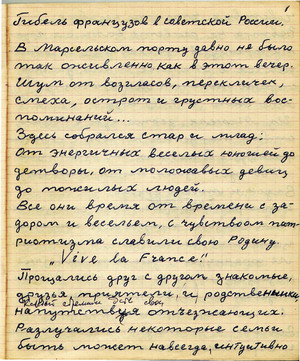 1
Гибель французов в советской России.
В Марсельском порту давно не было
так оживленно как в этот вечер.
Шум от возгласов, перекличек,
смеха, острот и грустных вос-
поминаний...
Здесь собрался стар и млад:
От энергичных веселых юношей до
детворы, от моложавых девиц
до пожилых людей.
Все они время от времени с за-
дором и весельем, с чувством пат-
риотизма славили свою Родину.
„Vive la France!"
Прощались друг с другом знакомые,
друзья, приятели, и родственники
свои
напутствуя отъезжающих.
Разлучались некоторые семьи
быть может навсегда, интуитивно